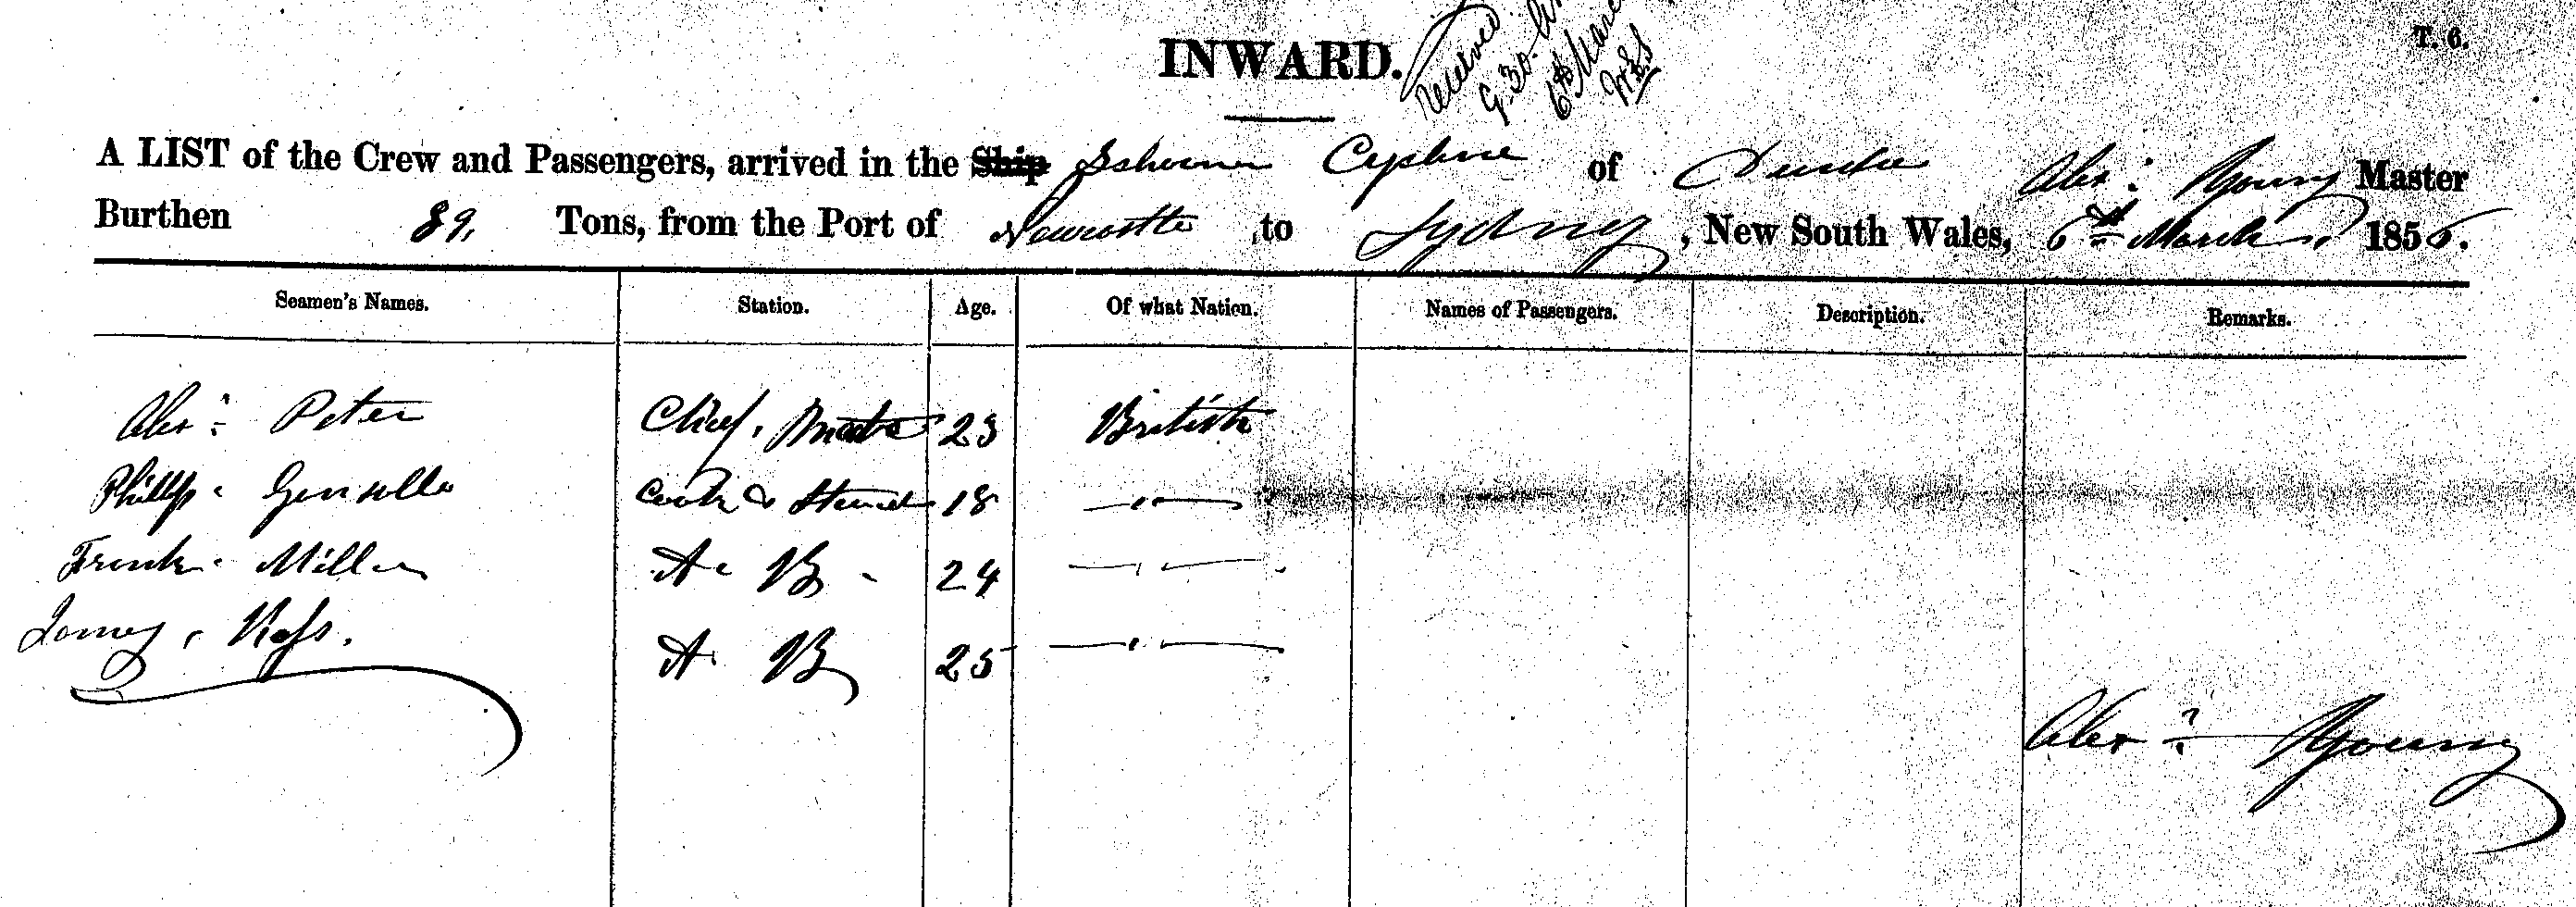 INWARD.
T. 6.
Received
9.30
6th March
A LIST of the Crew and Passengers, arrived in the Ship Schooner of Dundee Alexr. Young Master
Burthen 89, Tons, from the Port of Newcastle to Sydney, New South Wales, 6th March 1856.
Seamen's Names. Station. Age. Of what Nation. Names of Passengers. Description. Remarks.
Alexr. Peter Chief Mate 23 British
Phillip Cook & Steward 18 — " —
Frank Miller A B 24 — " —
James Ross. A B 25 — " —
Alexr. Young